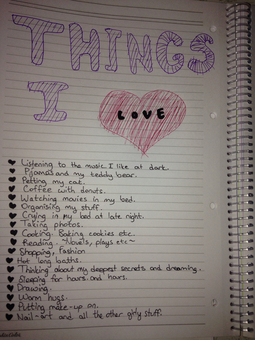 THINGS
I
LOVE
Listening to the music I like at dark.
Pijamas and my teddy bear.
Petting my cat.
Coffee with donuts.
Watching movies in my bed.
Organising my stuff.
Crying in my bed at late night.
Taking photos.
Cooking. Baking cookies etc.
Reading. ~Novels, plays etc~
Shopping, fashion
Hot long baths.
Thinking about my deepest secrets and dreaming.
Sleeping for hours and hours.
Drawing.
Warm hugs.
Putting make-up on.
Nail-art and all the other girly stuff.